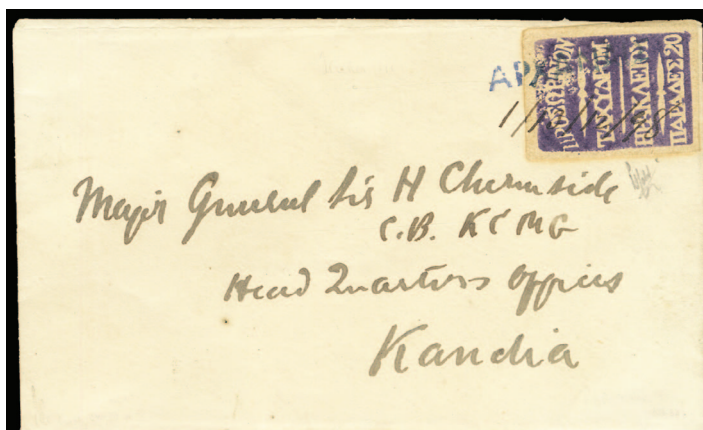 ΠΡΟΣΩΡΙΝΟΝ
ΤΑΧΥΔΡΟΜ.
ΗΡΑΚΛΕΙΟΥ
ΠΑΡΑΔΕΣ 20
Major General Sir H Chermside
C.B. KCMG
Head Quarters Offices
Kandia